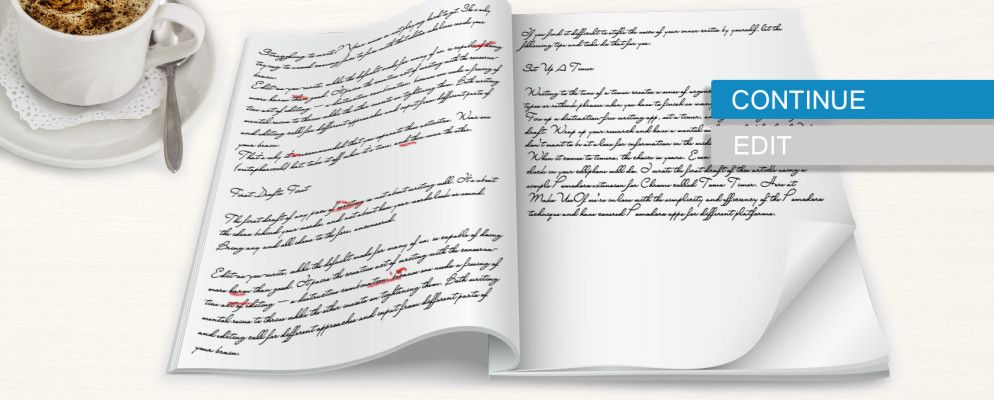 Struggling to write? Your muse is not playing hard to get. She's only
trying to
brain.
Edit as you write, the default mode for many of us, is capable of doing
more harm than good. It pairs the creative act of writing with the
time act of editing — a destructive combination because one needs a freeing of
mental reins to thrive while the other insists on tightening them. Both writing
and editing call for different approaches and input from different parts of
your brain.
That's why it's recommended that you separate these activities. Wear one
(metaphorical) hat, take it off when it's time, and then wear the other.
First Drafts First
The first draft of any piece of writing is not about writing well. It's about
the ideas behind your words, and not about how your words look or sound.
Bring any and all ideas to the fore, uncensored.
Edit as you write, the default mode for many of us, is capable of doing
more harm than good. It pairs the creative act of writing with the
time act of editing — a destructive combination because one needs a freeing of
mental reins to thrive while the other insists on tightening them. Both writing
and editing call for different approaches and input from different parts of
your brain.
If you find it difficult to stifle the voice of your inner critic by yourself, let the
following tips and tools do that for you.
Set Up A Timer
Writing to the tune of a timer creates a sense of
typos or rethink phrases when you have to finish as
Fire up a distraction-free writing app, set a timer,
draft. Wrap up your research and have a mental
don't want to be at a loss for information in the
When it comes to timers, the choice is yours. Even
clock or your cellphone will do. I wrote the first draft of this article using a
simple Pomodoro extension for Chrome called Time Timer. Here at
MakeUseOf we're in love with the simplicity and efficiency of the Pomodoro
technique and have covered Pomodoro apps for different platforms.
CONTINUE
EDIT